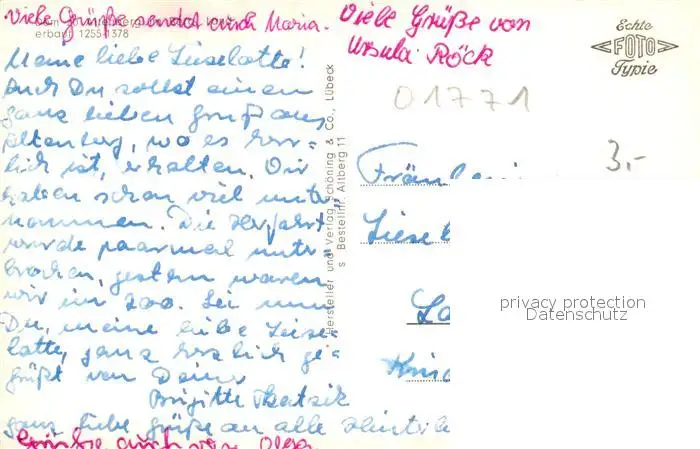 Viele Grüße sendet auch Maria.
erbaut 1255-1378
Meine liebe Lieselotte!
Auch Du sollst einen
ganz lieben Gruß aus
Altenberg, wo es herr=
lich ist, erhalten. Wir
haben schon viel unter=
nommen. Die Herfahrt
wurde paarmal unter=
brochen, gestern waren
wir im Zoo. Sei nun
Du, meine liebe Liese=
lotte, ganz herzlich ge=
grüßt von Deiner
Brigitte
ganz liebe Grüße an alle
Grüße auch von Olga
Hersteller und Verlag Schöning & Co., Lübeck
s Bestellnr. Altberg 11
Viele Grüße von
Ursula Röck
Echte
FOTO
Typie
01771
3,-
Fräulein
Liesel
privacy protection
Datenschutz